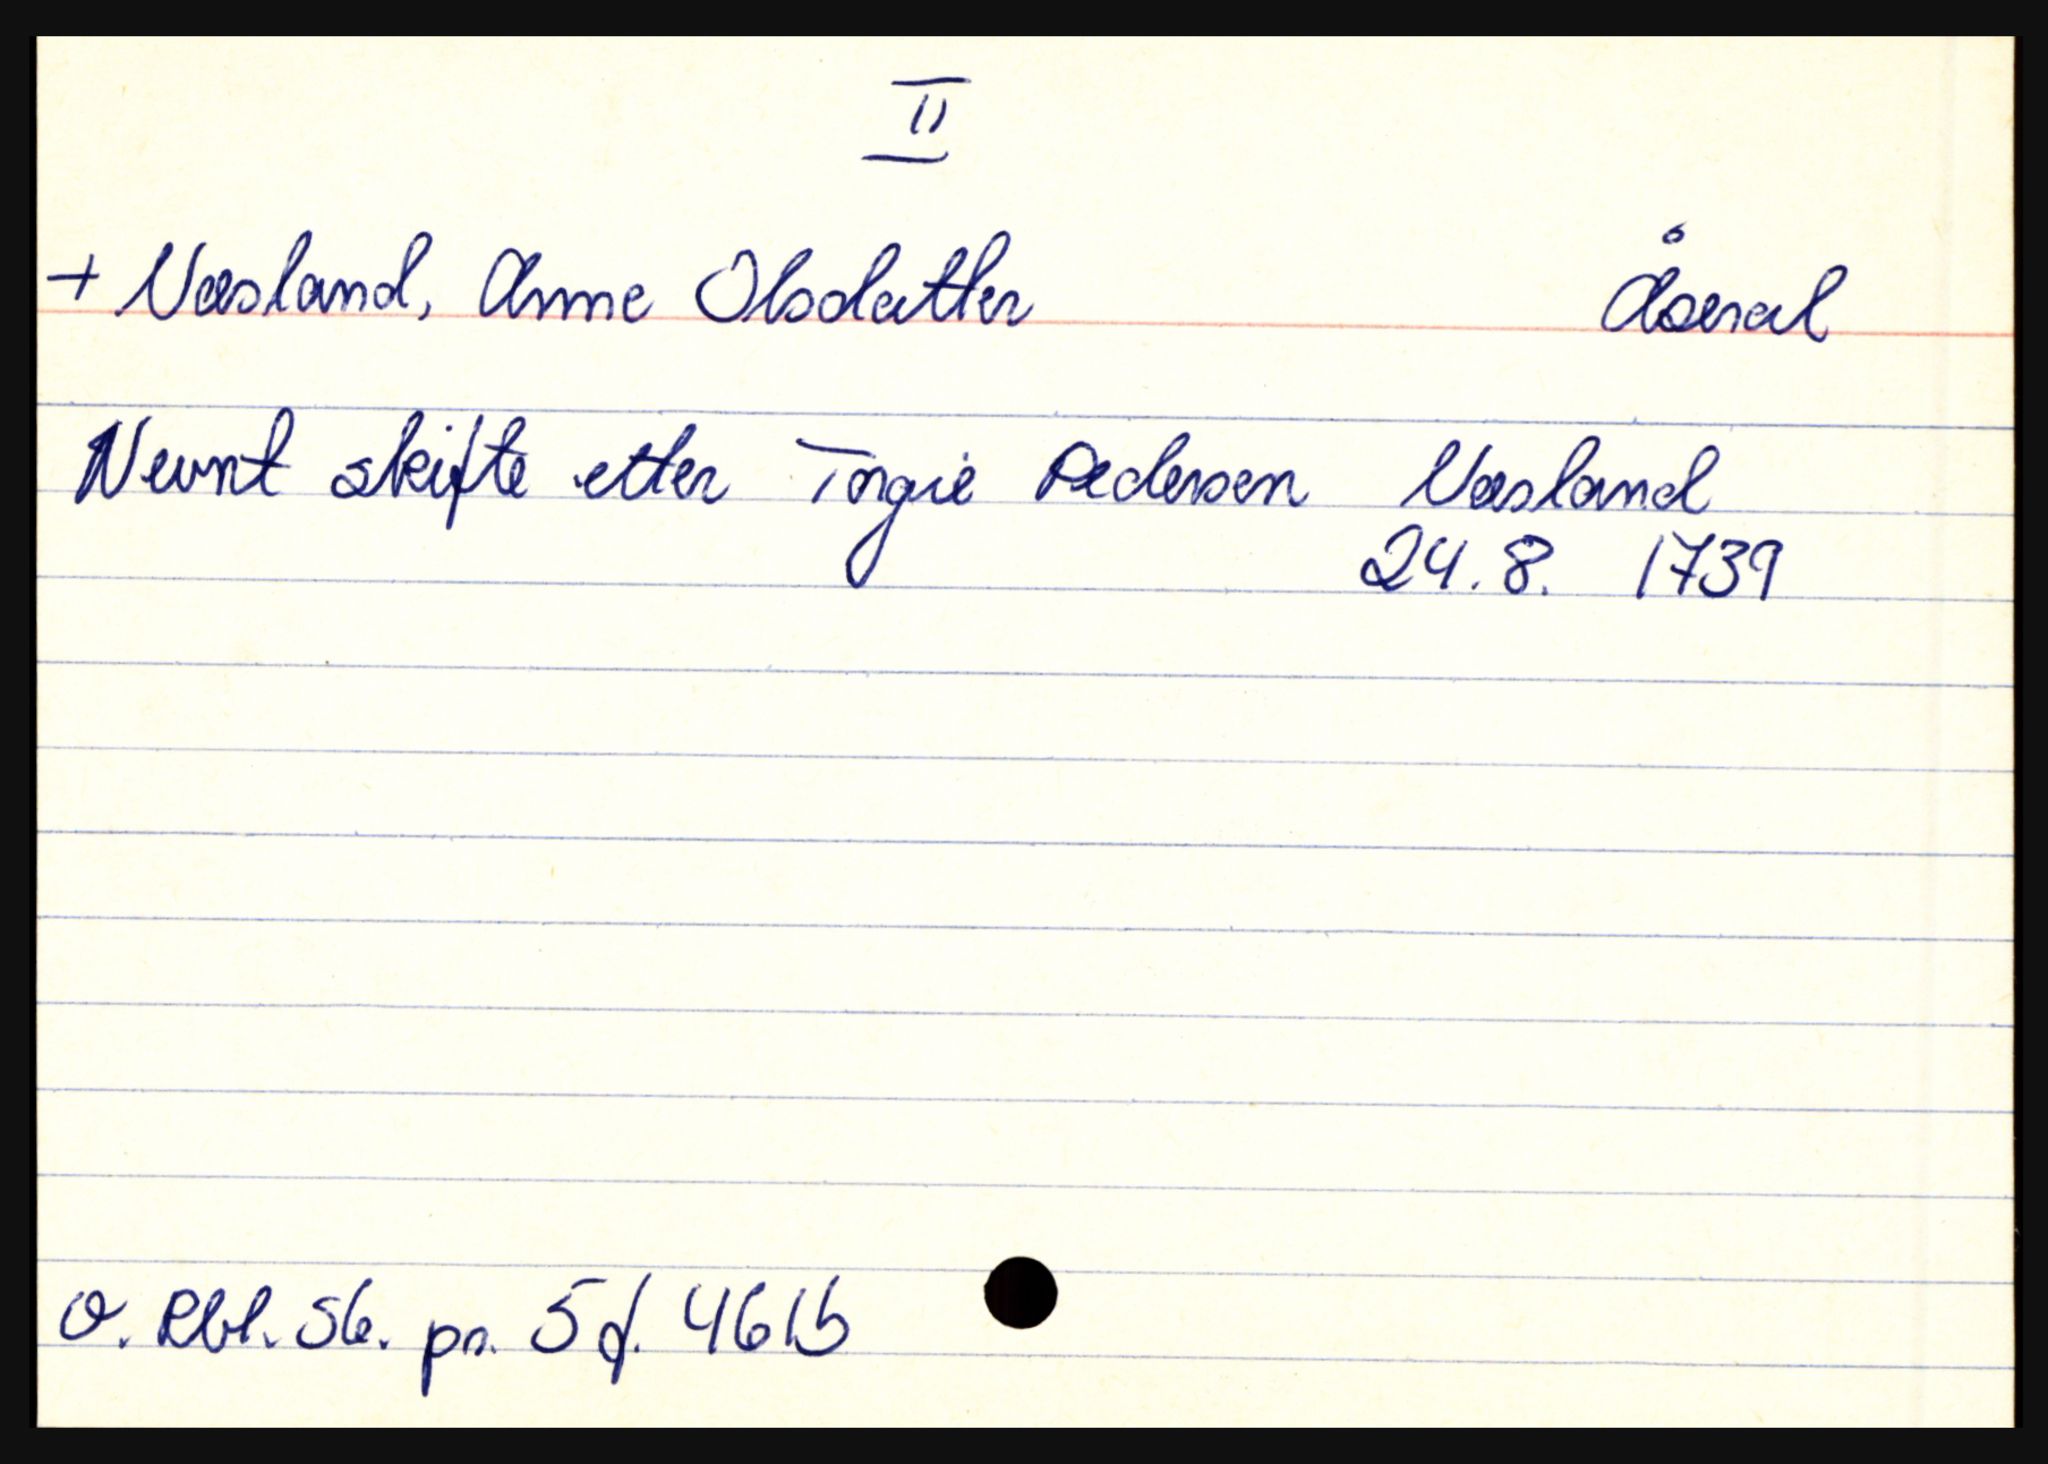 II
+ Væsland, Anne Olsdatter Åseral
Nevnt skifte etter Torgie Pedersen Væsland
24.8. 1739
O. Rbl. S6. pr. 5 f. 461b